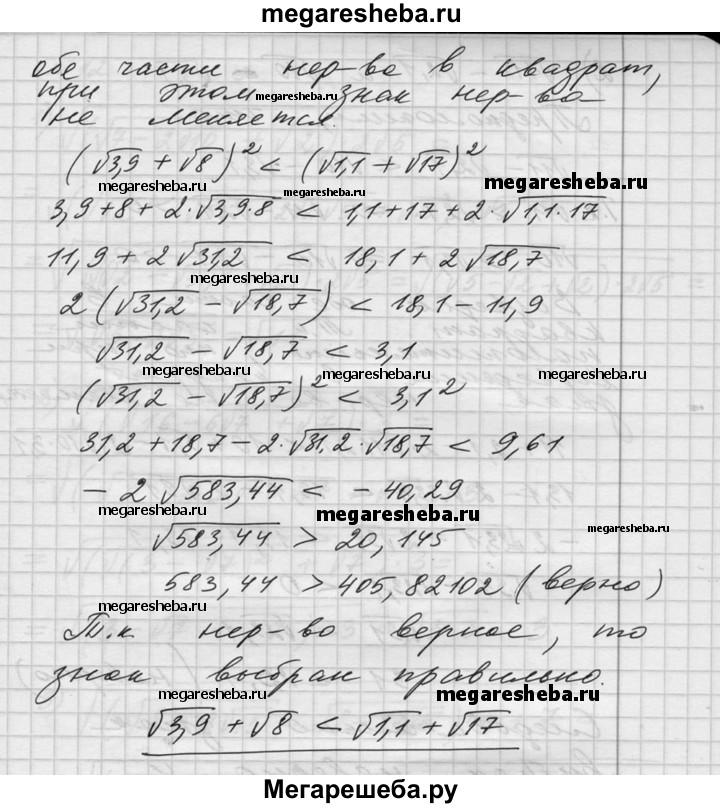 megaresheba.ru
обе части нер-во в квадрат,
при этом megaresheba.ru знак нер-ва
не меняется.
(√3,9 + √8)² < (√1,1 + √17)²
megaresheba.ru megaresheba.ru megaresheba.ru
3,9+8+2·√3,9·8 < 1,1+17+2·√1,1·17
11,9+2√31,2 < 18,1+2√18,7
megaresheba.ru
2(√31,2 − √18,7) < 18,1−11,9
√31,2 − √18,7 < 3,1
megaresheba.ru megaresheba.ru megaresheba.ru
(√31,2 − √18,7)² < 3,1²
31,2+18,7−2·√31,2·√18,7 < 9,61
−2√583,44 < −40,29
megaresheba.ru megaresheba.ru megaresheba.ru
√583,44 > 20,145
583,44 > 405,82102 (верно)
megaresheba.ru
Т.к нер-во верное, то
знак выбран правильно.
megaresheba.ru megaresheba.ru
√3,9 + √8 < √1,1 + √17
Мегарешеба.ру